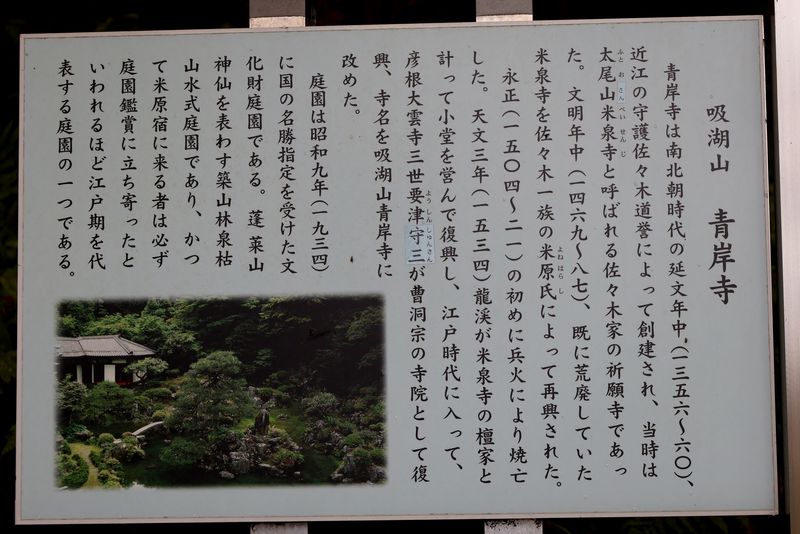 吸湖山　青岸寺
青岸寺は南北朝時代の延文年中（一三五六～六〇）、
近江の守護佐々木道誉によって創建され、当時は
太尾山米泉寺と呼ばれる佐々木家の祈願寺であっ
た。文明年中（一四六九～八七）、既に荒廃していた
米泉寺を佐々木一族の米原氏によって再興された。
永正（一五〇四～二一）の初めに兵火により焼亡
した。天文三年（一五三四）龍渓が米泉寺の檀家と
計って小堂を営んで復興し、江戸時代に入って、
彦根大雲寺三世要津守三が曹洞宗の寺院として復
興、寺名を吸湖山青岸寺に
改めた。
庭園は昭和九年（一九三四）
に国の名勝指定を受けた文
化財庭園である。蓬莱山
神仙を表わす築山林泉枯
山水式庭園であり、かつ
て米原宿に来る者は必ず
庭園鑑賞に立ち寄ったと
いわれるほど江戸期を代
表する庭園の一つである。